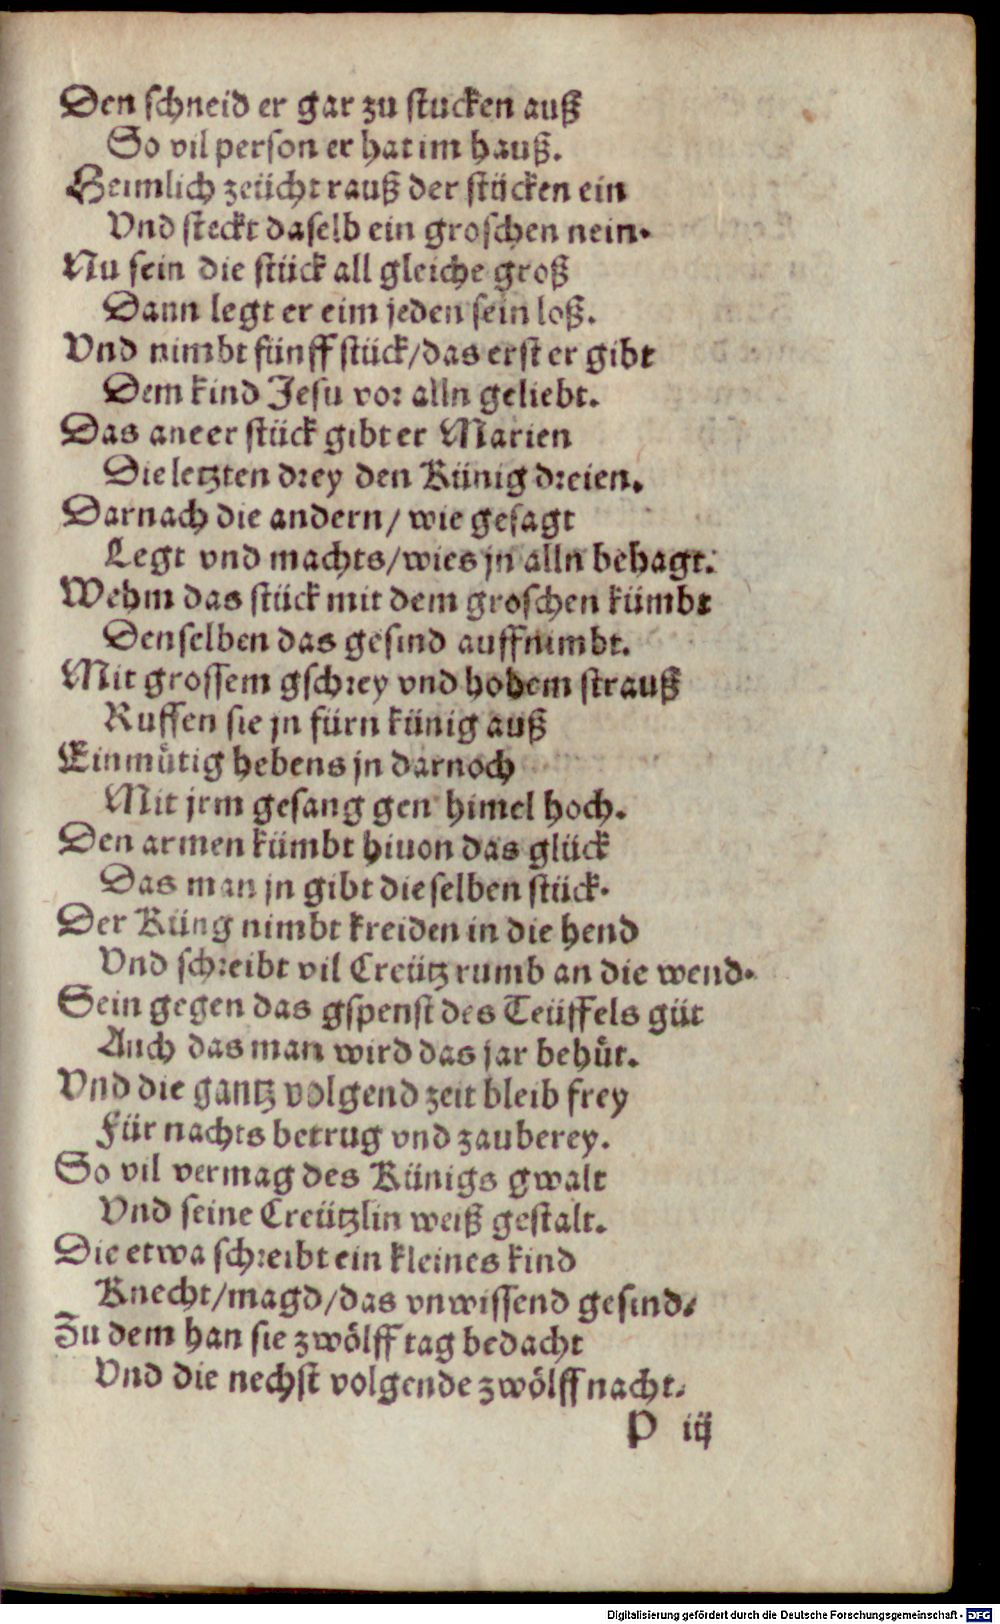 Den schneid er gar zu stucken auß
So vil person er hat im hauß.
Heimlich zeücht rauß der stücken ein
Vnd steckt daselb ein groschen nein.
Nu sein die stück all gleiche groß
Dann legt er eim jeden sein loß.
Vnd nimbt fünff stück/das erst er gibt
Dem kind Jesu vor alln geliebt.
Das aneer stück gibt er Marien
Die letzten drey den Künig dreien.
Darnach die andern/ wie gesagt
Legt vnd machts/wies jn alln behagt.
Wehm das stück mit dem groschen kümbt
Denselben das gesind auffnimbt.
Mit grossem gschrey vnd hohem strauß
Ruffen sie jn fürn künig auß
Einmůtig hebens jn darnoch
Mit jrm gesang gen himel hoch.
Den armen kümbt hiuon das glück
Das man jn gibt die selben stück.
Der Küng nimbt kreiden in die hend
Vnd schreibt vil Creütz rumb an die wend.
Sein gegen das gspenst des Teüffels güt
Auch das man wird das jar behůt.
Vnd die gantz volgend zeit bleib frey
Für nachts betrug vnd zauberey.
So vil vermag des Künigs gwalt
Vnd seine Creützlin weiß gestalt.
Die etwa schreibt ein kleines kind
Knecht/magd/das vnwissend gesind.
Zu dem han sie zwölff tag bedacht
Vnd die nechst volgende zwölff nacht.
P iij
Digitalisierung gefördert durch die Deutsche Forschungsgemeinschaft - DFG